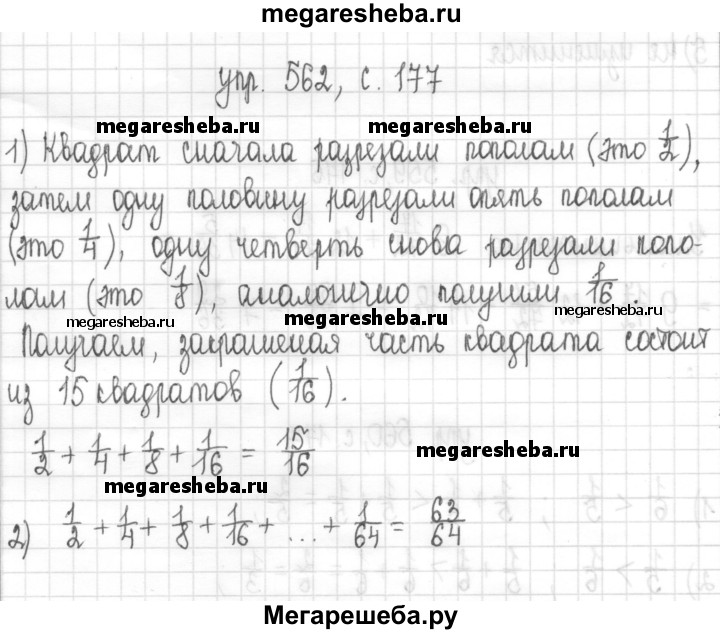 megaresheba.ru
упр. 562, с. 177
megaresheba.ru megaresheba.ru
1) Квадрат сначала разрезали пополам (это 1/2),
затем одну половину разрезали опять пополам
(это 1/4), одну четверть снова разрезали попо-
лам (это 1/8), аналогично получили 1/16.
megaresheba.ru megaresheba.ru megaresheba.ru
Получаем, закрашеная часть квадрата состоит
из 15 квадратов (1/16).
1/2 + 1/4 + 1/8 + 1/16 = 15/16
megaresheba.ru
megaresheba.ru
2) 1/2 + 1/4 + 1/8 + 1/16 + ... + 1/64 = 63/64
Мегарешеба.ру